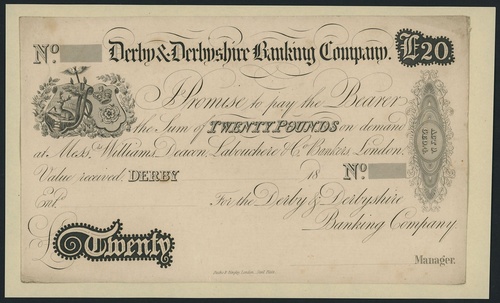 No. Derby & Derbyshire Banking Company. £20
I Promise to pay the Bearer
the Sum of TWENTY POUNDS on demand
at Messrs. Williams, Deacon, Labouchere & Co. Bankers, London.
Value received, DERBY 18 No.
Entd. For the Derby & Derbyshire
Banking Company.
£ Twenty
Manager.